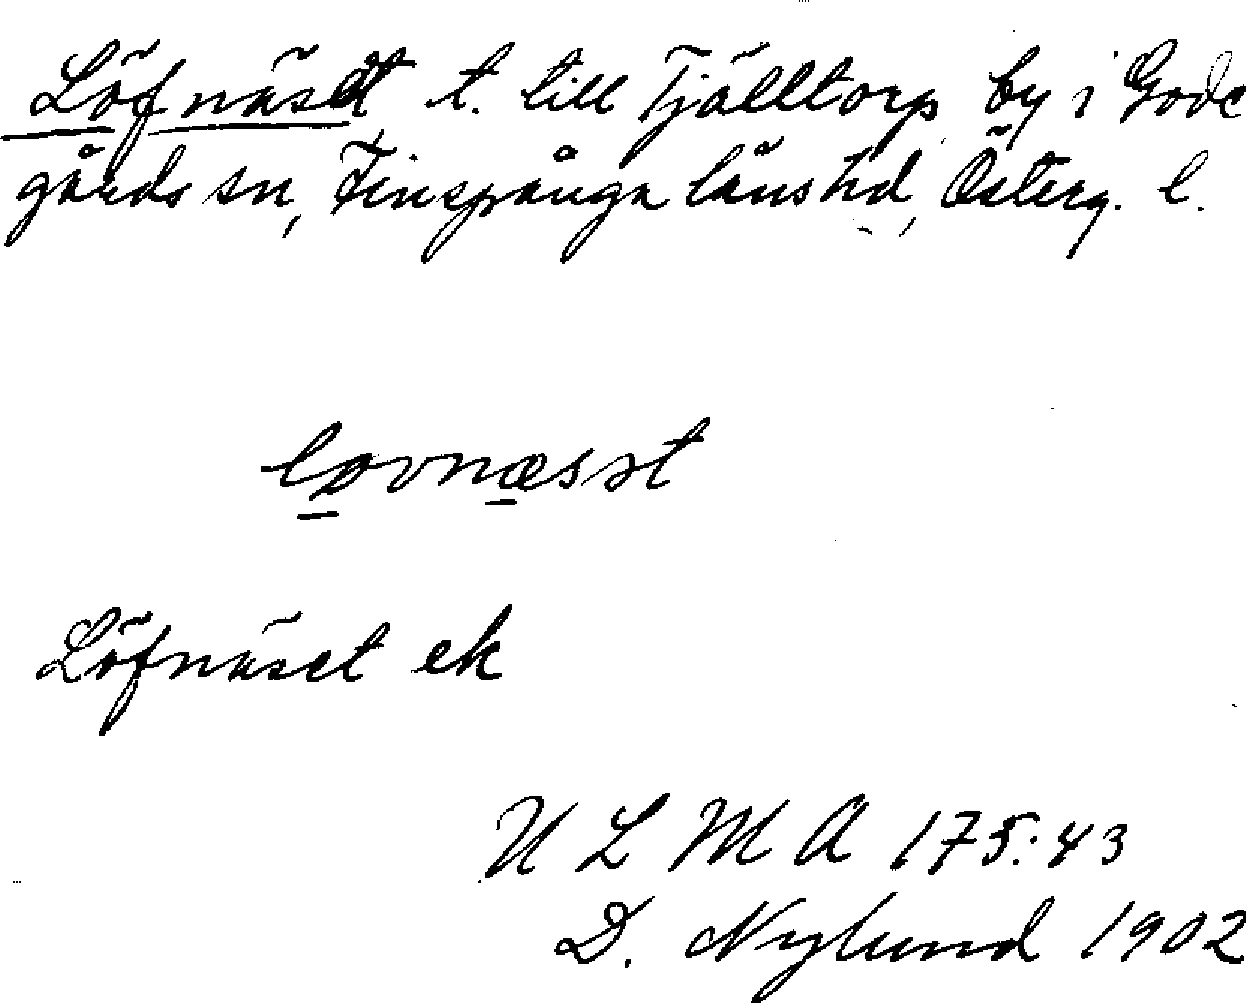 Löfnäset t. till Tjälltorp by i Gode
gårds sn, Finspånga läns hd, Österg. l.
løvnæsət
Löfnäset ek
U L M A 175:43
D. Nylund 1902